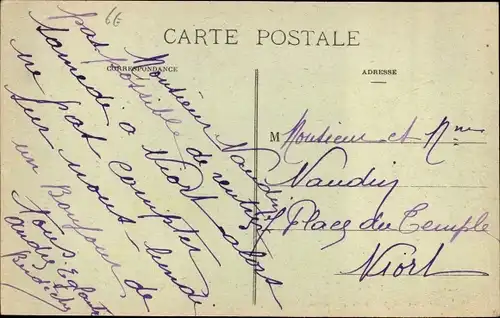 6€
CARTE POSTALE
CORRESPONDANCE
ADRESSE
Monsieur Vaudin
pas possible de rentrer
samedi a Niort alors
ne pas compter
sur nous lundi
un Bonjour de
tous
M Monsieur et Mme
Vaudin
7 Place du Temple
Niort